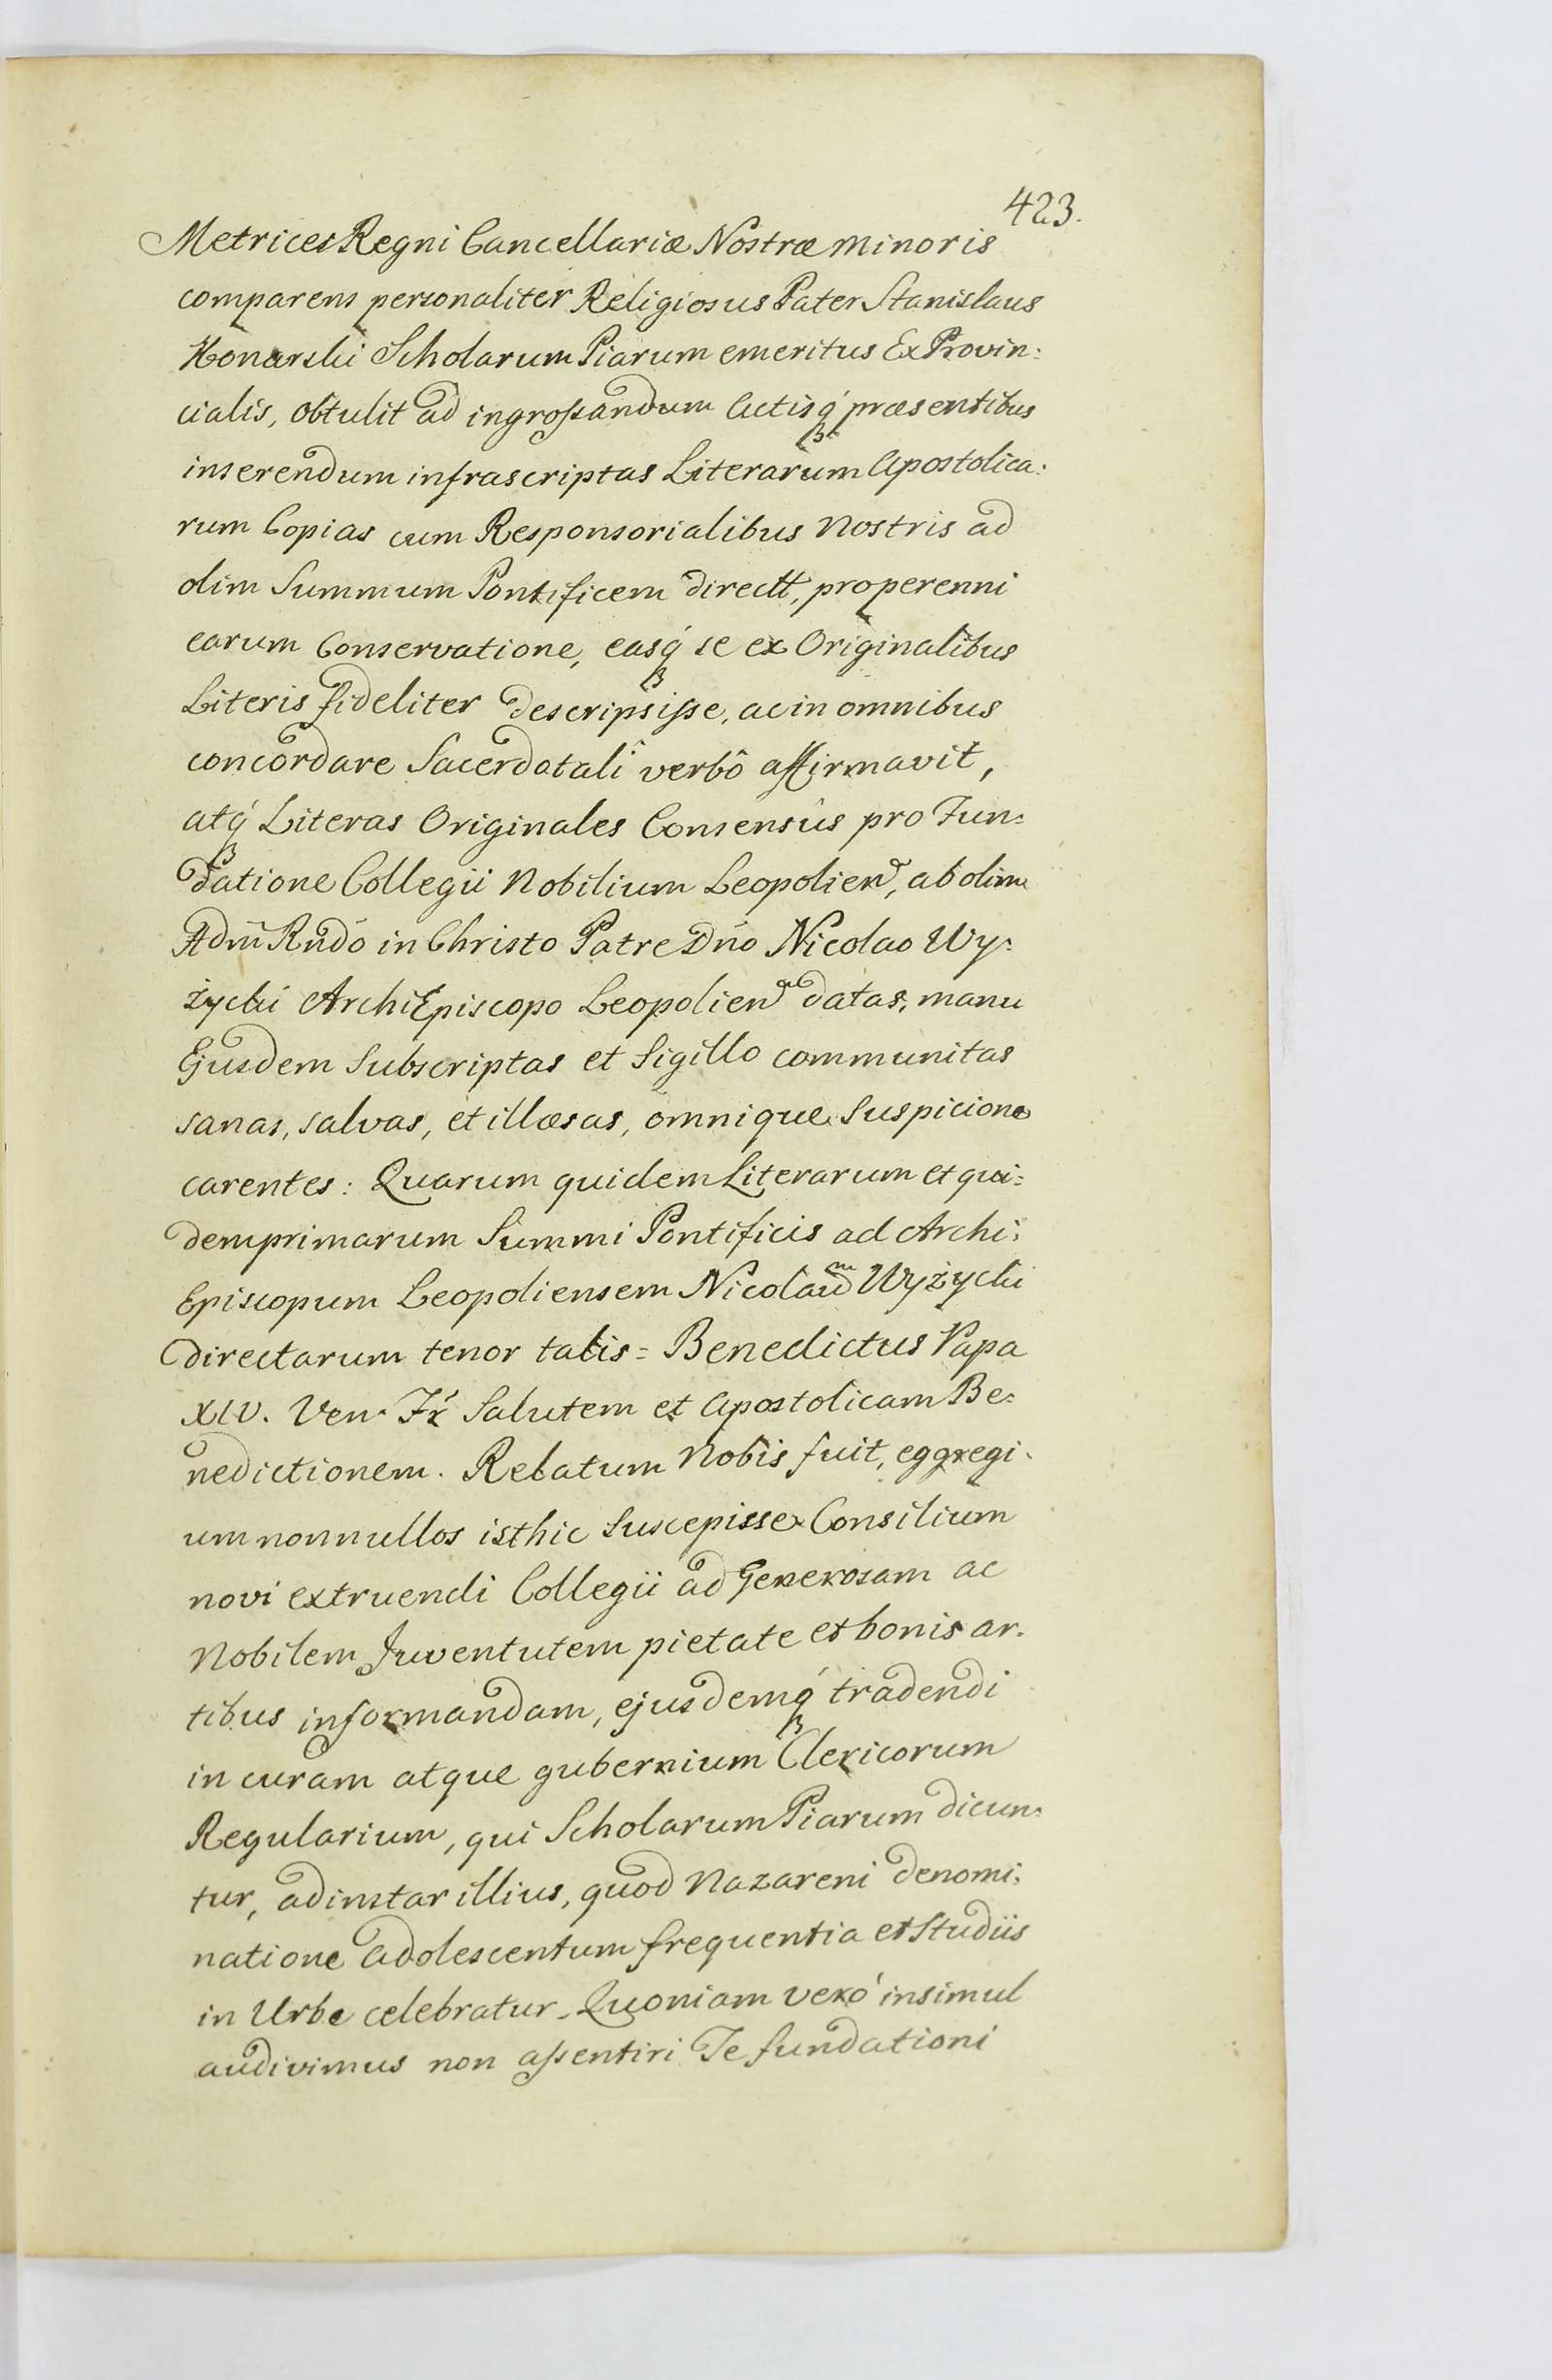 423.
Metrices Regni Cancellariæ Nostræ minoris
comparens personaliter Religiosus Pater Stanislaus
Konarski Scholarum Piarum emeritus ExProvin:
cialis, obtulit ad ingrossandum Actisq́ præsentibus
inserendum infrascriptas Literarum Apostolica:
rum Copias cum Responsorialibus Nostris ad
olim Summum Pontificem directt, pro perenni
earum Conservatione, easq́ se ex Originalibus
Literis fideliter descripsisse, ac in omnibus
concordare Sacerdotali verbô affirmavit,
atq́ Literas Originales Consensûs pro Fun:
datione Collegii Nobilium Leopolien, ab olim
Adm Rndo in Christo Patre Dno Nicolao Wy:
życki ArchiEpiscopo Leopolien datas, manu
Ejusdem Subscriptas et Sigillo communitas
sanas, salvas, et illæsas, omnique Suspicione
carentes: Quarum quidem Literarum et qui:
dem primarum Summi Pontificis ad Archi:
Episcopum Leopoliensem Nicolaum Wyżycki
directarum tenor talis = Benedictus Papa
XIV. Ven. Fr Salutem et Apostolicam Be:
nedictionem. Relatum Nobis fuit, eggregi:
um nonnullos isthic Suscepisse Consilium
novi extruendi Collegii ad Generosam ac
Nobilem Juventutem pietate et bonis ar:
tibus informandam, ejusdemq́ tradendi
in curam atque gubernium Clericorum
Regularium, qui Scholarum Piarum dicun:
tur, ad instar illius, quod Nazareni denomi:
natione adolescentum frequentia et Studiis
in Urbe celebratur. Quoniam verò insimul
audivimus non assentiri Te fundationi